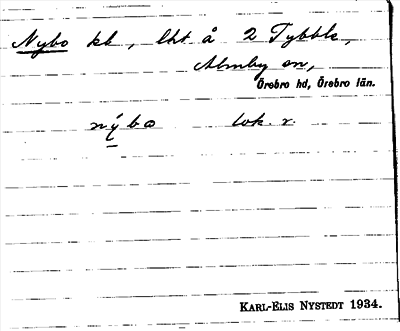 Nybo kb, lht å 2 Tybble,
Almby sn,
Örebro hd, Örebro län.
nýbo lok. v.
KARL-ELIS NYSTEDT 1934.